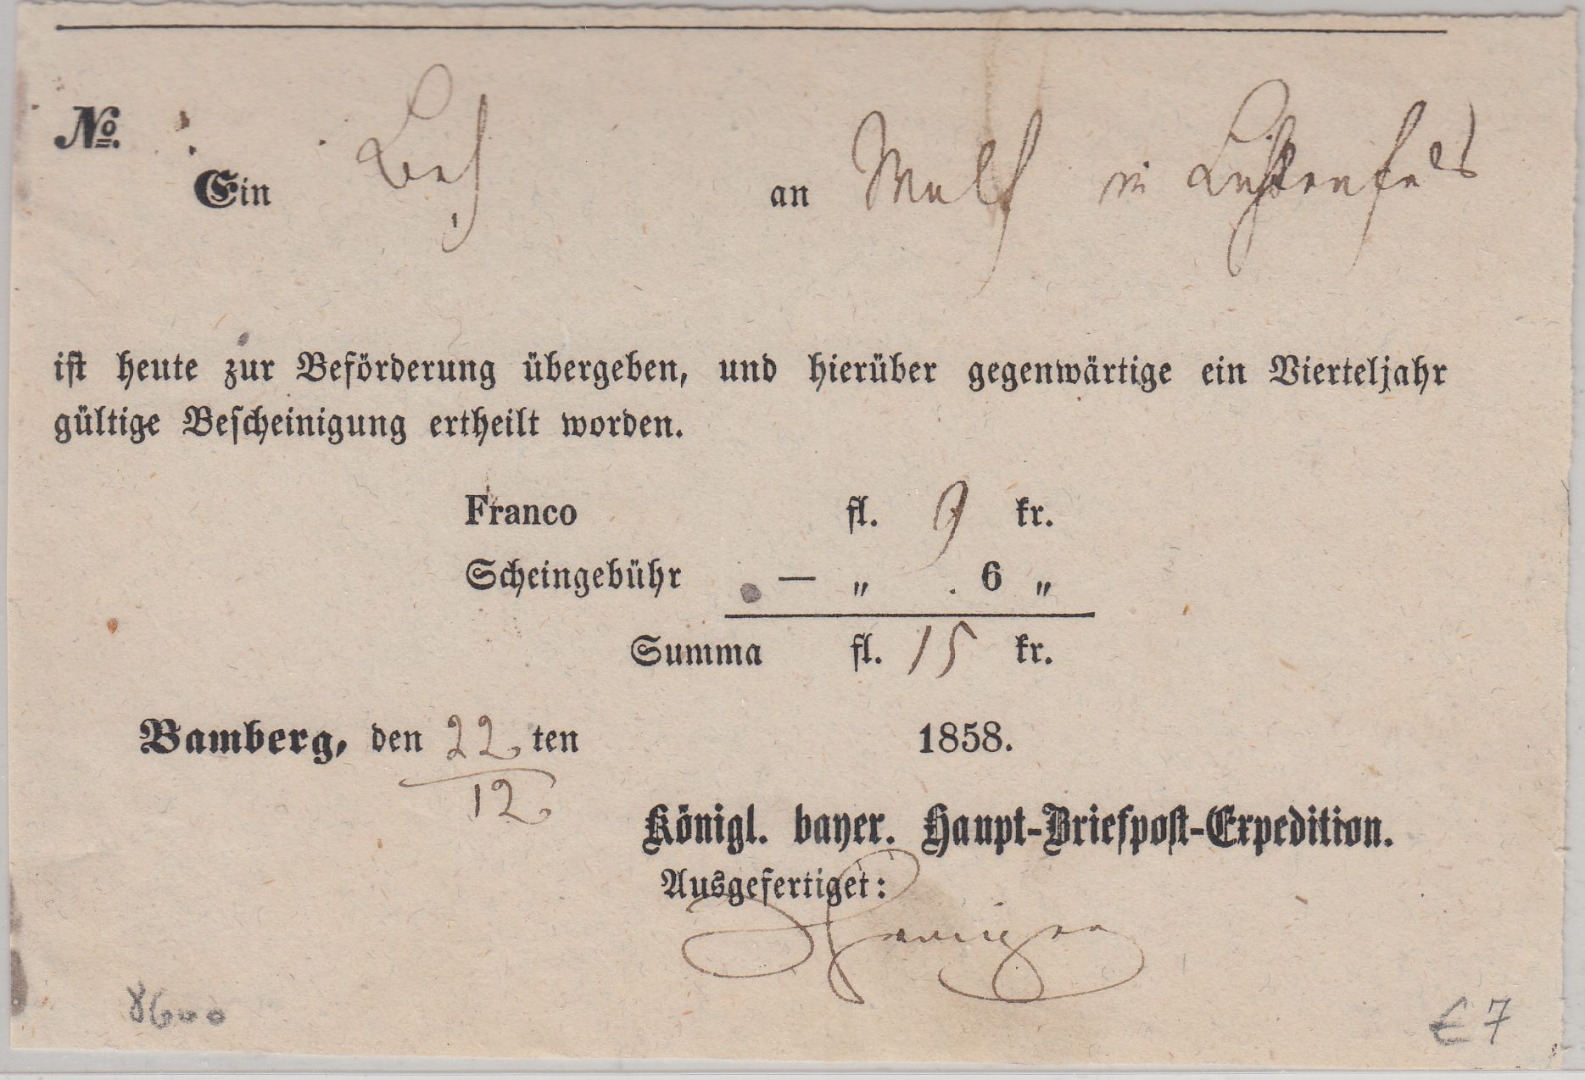 No.
Ein an in
ist heute zur Beförderung übergeben, und hierüber gegenwärtige ein Vierteljahr
gültige Bescheinigung ertheilt worden.
Franco fl. 9 kr.
Scheingebühr — „ 6 „
Summa fl. 15 kr.
Bamberg, den 22 ten 1858.
12
Königl. bayer. Haupt-Briefpost-Expedition.
Ausgefertiget:
8600 € 7